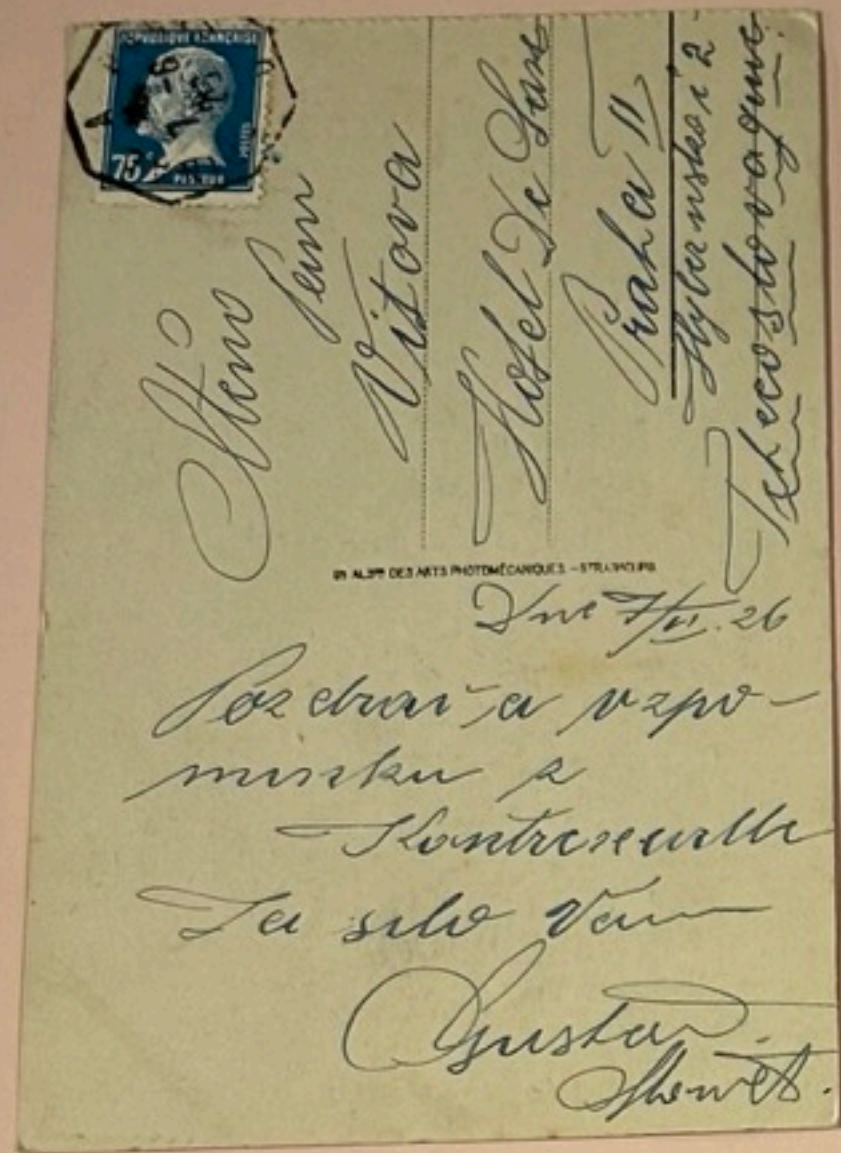 REPUBLIQUE FRANÇAISE
75
PASTEUR
POSTES
Ctěná
Paní
Vitova
Hotel De Saxe
Praha II
Hybernská 2
Tchecoslovaquie
DES ARTS PHOTOMÉCANIQUES - STRASBOURG
Dne 7/VI. 26
Pozdrav a vzpo-
mínku z
Kontrexeville
Za silá Vám
Gustav